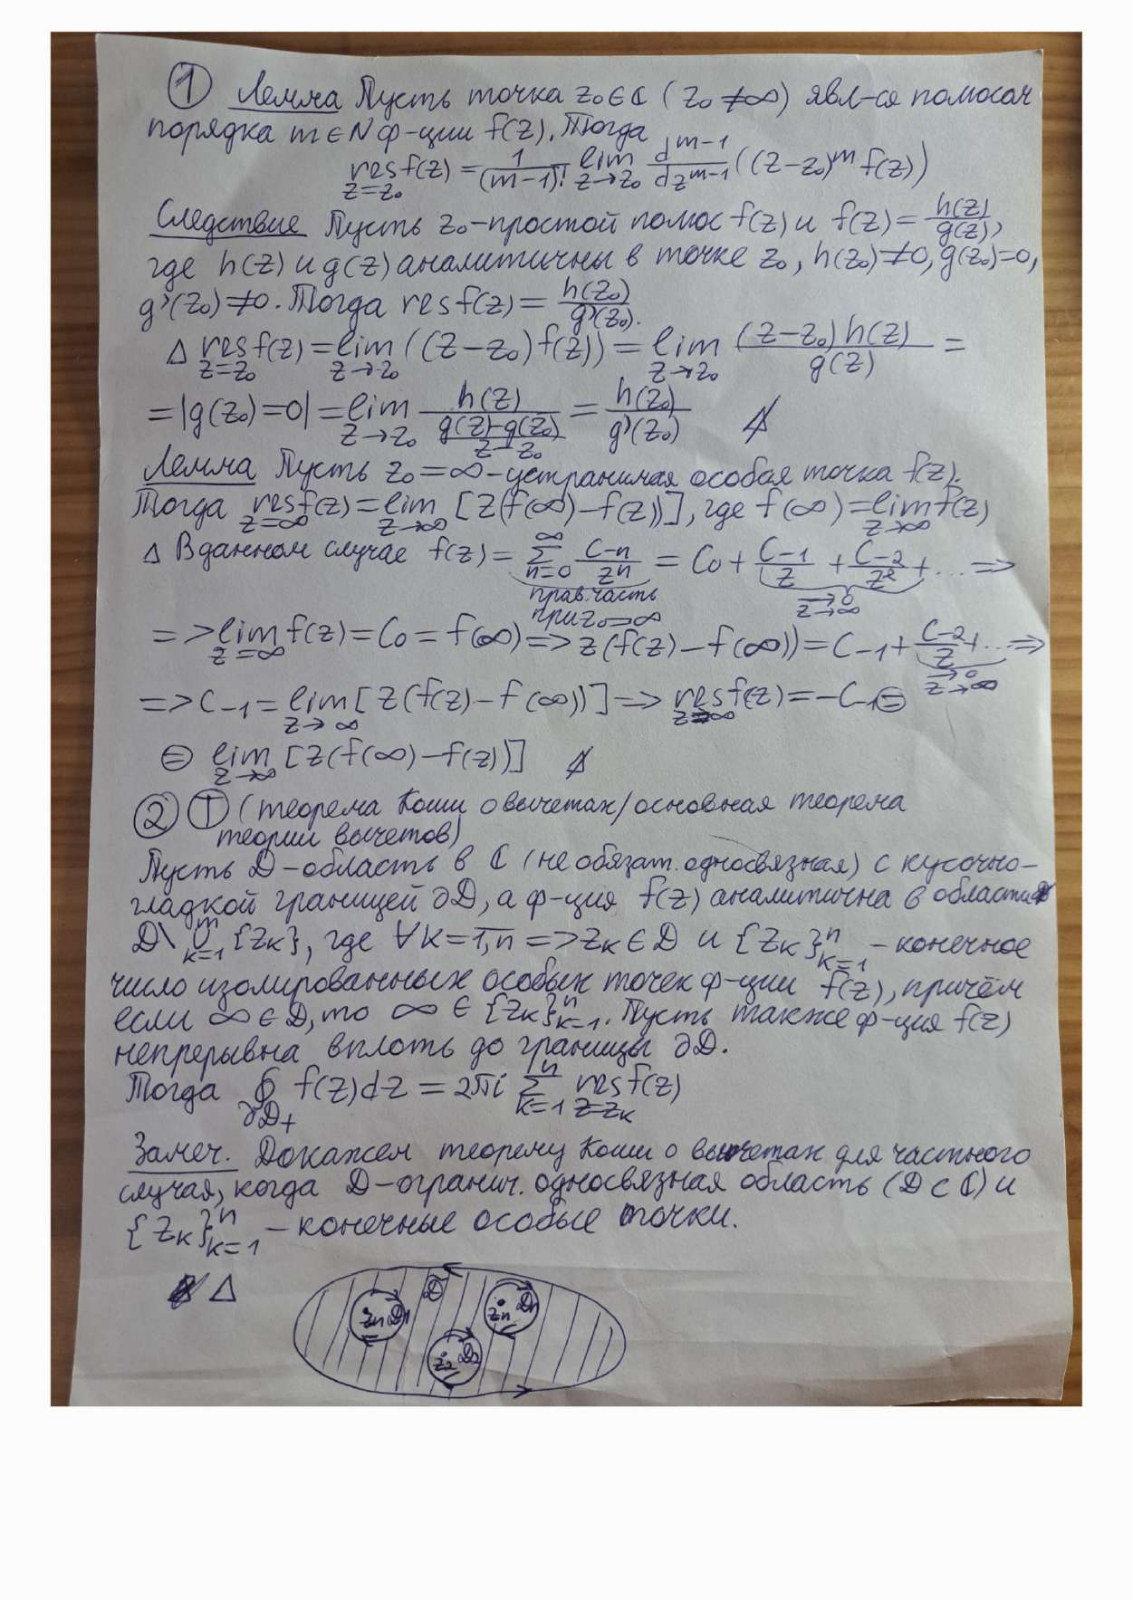 ① Лемма Пусть точка z₀∈ℂ (z₀≠∞) явл-ся полюсом
порядка m∈N ф-ции f(z). Тогда
res_{z=z₀} f(z) = 1/(m-1)! lim_{z→z₀} d^{m-1}/dz^{m-1} ((z-z₀)^m f(z))
Следствие Пусть z₀-простой полюс f(z) и f(z) = h(z)/g(z),
где h(z) и g(z) аналитичны в точке z₀, h(z₀)≠0, g(z₀)=0,
g'(z₀)≠0. Тогда res f(z) = h(z₀)/g'(z₀).
Δ res_{z=z₀} f(z) = lim_{z→z₀} ((z-z₀) f(z)) = lim_{z→z₀} (z-z₀)h(z)/g(z) =
= |g(z₀)=0| = lim_{z→z₀} h(z)/((g(z)-g(z₀))/(z-z₀)) = h(z₀)/g'(z₀)
Лемма Пусть z₀=∞-устранимая особая точка f(z).
Тогда res_{z=∞} f(z) = lim_{z→∞} [z(f(∞)-f(z))], где f(∞) = lim_{z→∞} f(z)
Δ В данном случае f(z) = Σ_{n=0}^{∞} C_{-n}/z^n = C₀ + C_{-1}/z + C_{-2}/z² + ... ⇒
прав. часть
при z₀=∞
→0
z→∞
=> lim_{z=∞} f(z) = C₀ = f(∞) => z(f(z)-f(∞)) = C_{-1} + C_{-2}/z + ... ⇒
→0
z→∞
=> C_{-1} = lim_{z→∞} [z(f(z)-f(∞))] => res_{z=∞} f(z) = -C_{-1} ⊜
⊜ lim_{z→∞} [z(f(∞)-f(z))]
② Ⓣ (теорема Коши о вычетах/основная теорема
теории вычетов)
Пусть D-область в ℂ (не обязат. односвязная) с кусочно-
гладкой границей ∂D, а ф-ция f(z) аналитична в области
D\ ∪_{k=1}^{n} {z_k}, где ∀k=1,n => z_k∈D и {z_k}_{k=1}^{n} - конечное
число изолированных особых точек ф-ции f(z), причём
если ∞∈D, то ∞∈{z_k}_{k=1}^{n}. Пусть также ф-ция f(z)
непрерывна вплоть до границы ∂D.
Тогда ∮_{∂D₊} f(z)dz = 2πi Σ_{k=1}^{n} res_{z=z_k} f(z)
Замеч. Докажем теорему Коши о вычетах для частного
случая, когда D-огранич. односвязная область (D⊂ℂ) и
{z_k}_{k=1}^{n} - конечные особые точки.
Δ
D
D₁
z₂ D₂
z_n D_n